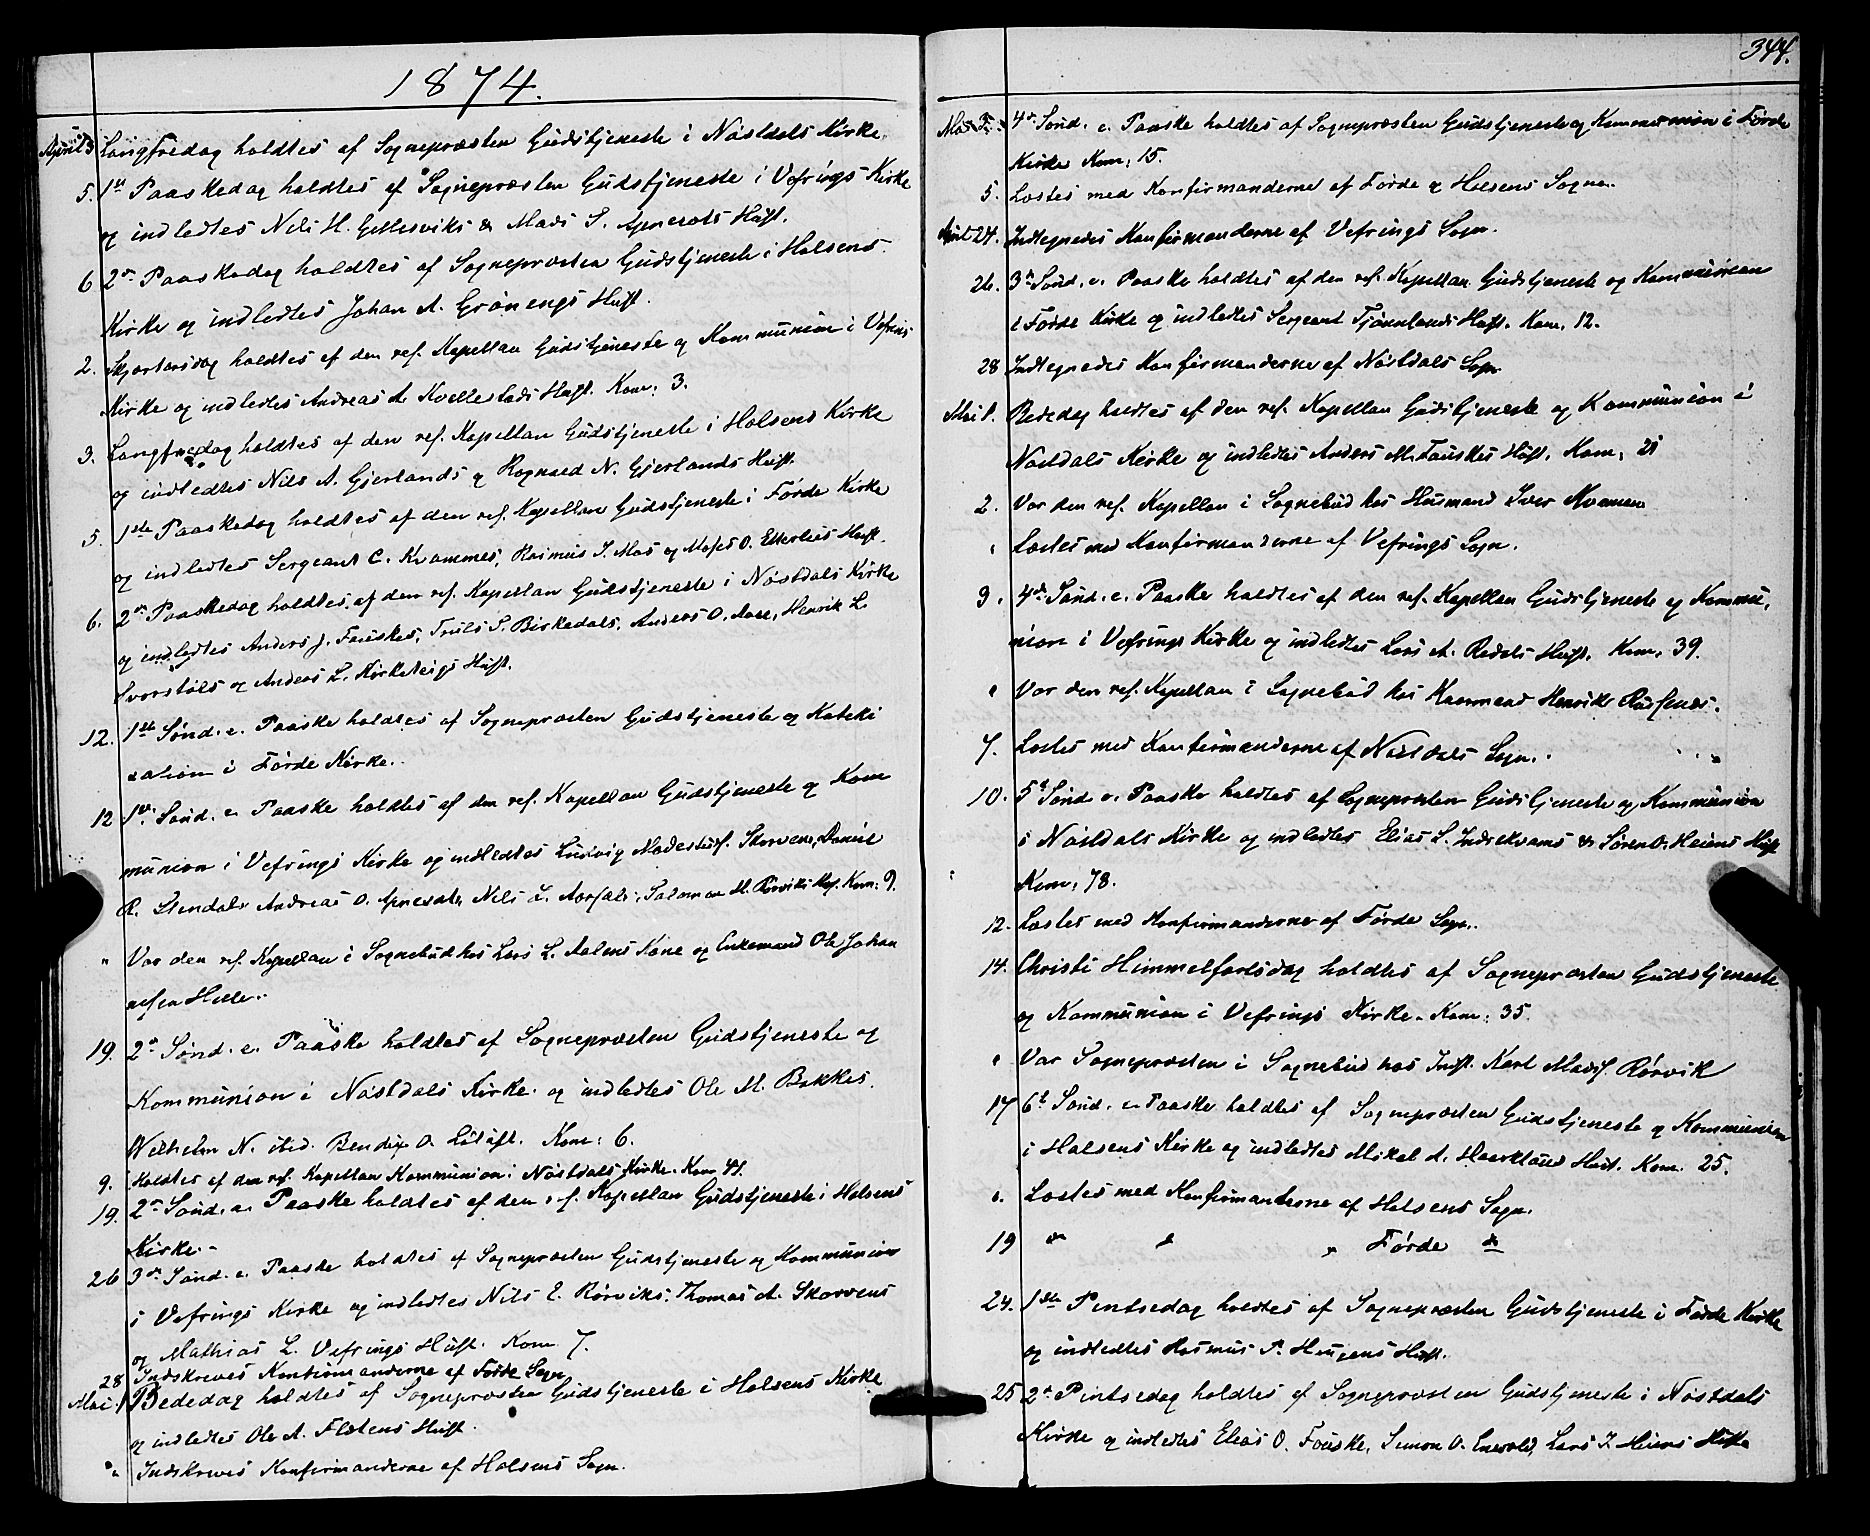 1874.
April 3 Langfredag holdtes af Sognepræsten Gudstjeneste i Nøstdals Kirke.
5. 1ste Paaskedag holdtes af Sognepræsten Gudstjeneste i Vefrings Kirke
og indledtes Nils H. Gjellesviks & Mads S. Hust.
6 2den Paaskedag holdtes af Sognepræsten Gudstjeneste i Holsens
Kirke og indledtes Johan A. Grønengs Hust.
2. Skjærtorsdag holdtes af den ref. Kapellan Gudstjeneste og Kommunion i Vefrings
Kirke og indledtes Andreas A. Kvellestads Hust. Kom: 3.
3. Langfredag holdtes af den ref. Kapellan Gudstjeneste i Holsens Kirke
og indledtes Nils A. Gjerlands og Rognald N. Gjerlands Hust.
5. 1ste Paaskedag holdtes af den ref. Kapellan Gudstjeneste i Førde Kirke
og indledtes Sergeant C. Kvammes, Rasmus J. Mos og Moses O. Hust.
6. 2den Paaskedag holdtes af den ref. Kapellan Gudstjeneste i Nøstdals Kirke
og indledtes Anders J. Fauskes, Truls S. Birkedals, Anders O. Aase, Henrik L.
Svorstøls og Anders L. Kirketeigs Hust.
12. 1ste Sønd. e. Paaske holdtes af Sognepræsten Gudstjeneste og Kateki
sation i Førde Kirke.
12 1ste Sønd. e. Paaske holdtes af den ref. Kapellan Gudstjeneste og Kom
munion i Vefrings Kirke og indledtes Ludvig Skorvene, Daniel
R. Stendals Andreas O. Nils L. Salomon M. Rørviks Hus. Kom: 9.
" Var den ref. Kapellan i Sognebud hos Lars L. Aalens Kone og Enkemand Ole Johan
nesen Helle.
19. 2den Sønd. e. Paaske holdtes af Sognepræsten Gudstjeneste og
Kommunion i Nøstdals Kirke og indledtes Ole M. Bakkes,
Wilhelm N. ibid. Bendix O. Kom: 6.
9. Holdtes af den ref. Kapellan Kommunion i Nøstdals Kirke. Kom 41.
19. 2den Sønd. e. Paaske holdtes af den ref. Kapellan Gudstjeneste i Holsens
Kirke.
26 3die Sønd. e. Paaske holdtes af Sognepræsten Gudstjeneste og Kommunion
i Vefrings Kirke og indledtes Nils E. Rørviks, Thomas A. Skorvens
og Mathias L. Vefrings Hust. Kom. 7.
28 Indskreves Konfirmanderne af Førde Sogn
Mai 1 Bededag holdtes af Sognepræsten Gudstjeneste i Holsens Kirke
og indledtes Ole A. Flatens Hust.
" Indskreves Konfirmanderne af Holsens Sogn.
344.
Mai 3. 4de Sønd. e. Paaske holdtes af Sognepræsten Gudstjeneste og Kommunion i Førde
Kirke Kom: 15.
5. Læstes med Konfirmanderne af Førde og Holsens Sogne.
April 24. Indtegnedes Konfirmanderne af Vefrings Sogn.
26. 3die Sønd. e. Paaske holdtes af den ref. Kapellan Gudstjeneste og Kommunion
i Førde Kirke og indledtes Sergeant Tjønnlands Hust. Kom. 12.
28 Indtegnedes Konfirmanderne af Nøstdals Sogn
Mai 1. Bededag holdtes af den ref. Kapellan Gudstjeneste og Kommunion i
Nøstdals Kirke og indledtes Anders M. Fauskes Hust. Kom: 21
2. Var den ref. Kapellan i Sognebud hos Husmand Iver Kvammen
" Læstes med Konfirmanderne af Vefrings Sogn.
3. 4de Sønd. e. Paaske holdtes af den ref. Kapellan Gudstjeneste og Kommu,
nion i Vefrings Kirke og indledtes Lars A. Redals Hust. Kom. 39.
" Var den ref. Kapellan i Sognebud hos Henrik
7. Læstes med Konfirmanderne af Nøstdals Sogn.
10. 5te Sønd. e. Paaske holdtes af Sognepræsten Gudstjeneste og Kommunion
i Nøstdals Kirke og indledtes Elias L. Indrekvams & Søren O. Heiens Hust
Kom: 78.
12. Læstes med Konfirmanderne af Førde Sogn.
14. Christi Himmelfartsdag holdtes af Sognepræsten Gudstjeneste
og Kommunion i Vefrings Kirke. Kom: 35.
" Var Sognepræsten i Sognebud hos Inst. Karl Mads. Rørvik
17 6te Sønd. e. Paaske holdtes af Sognepræsten Gudstjeneste og Kommunion
i Holsens Kirke og indledtes Mikal A. Haarklaus Hust. Kom. 25.
" Læstes med Konfirmanterne af Holsens Sogn.
19 do do " Førde do
24. 1ste Pintsedag holdtes af Sognepræsten Gudstjeneste i Førde Kirke
og indledtes Rasmus P. Haugens Hust.
25 2den Pintsedag holdtes af Sognepræsten Gudstjeneste i Nøstdals
Kirke og indledtes Elias O. Fauske, Simon O. Lars I. Heiens Hustr